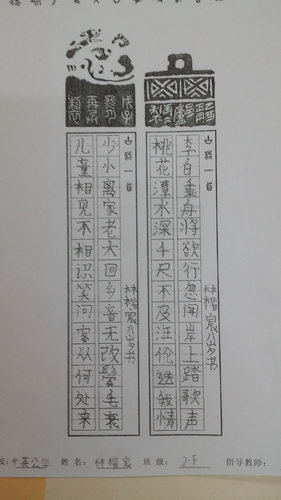 古诗一首
林楷宸八岁书
李白乘舟将欲行忽闻岸上踏歌声
桃花潭水深千尺不及汪伦送我情
古诗一首
林楷宸八岁书
少小离家老大回乡音无改鬓毛衰
儿童相见不相识笑问客从何处来
校:中英公学 姓名:林楷宸 班级:2-F 指导教师: